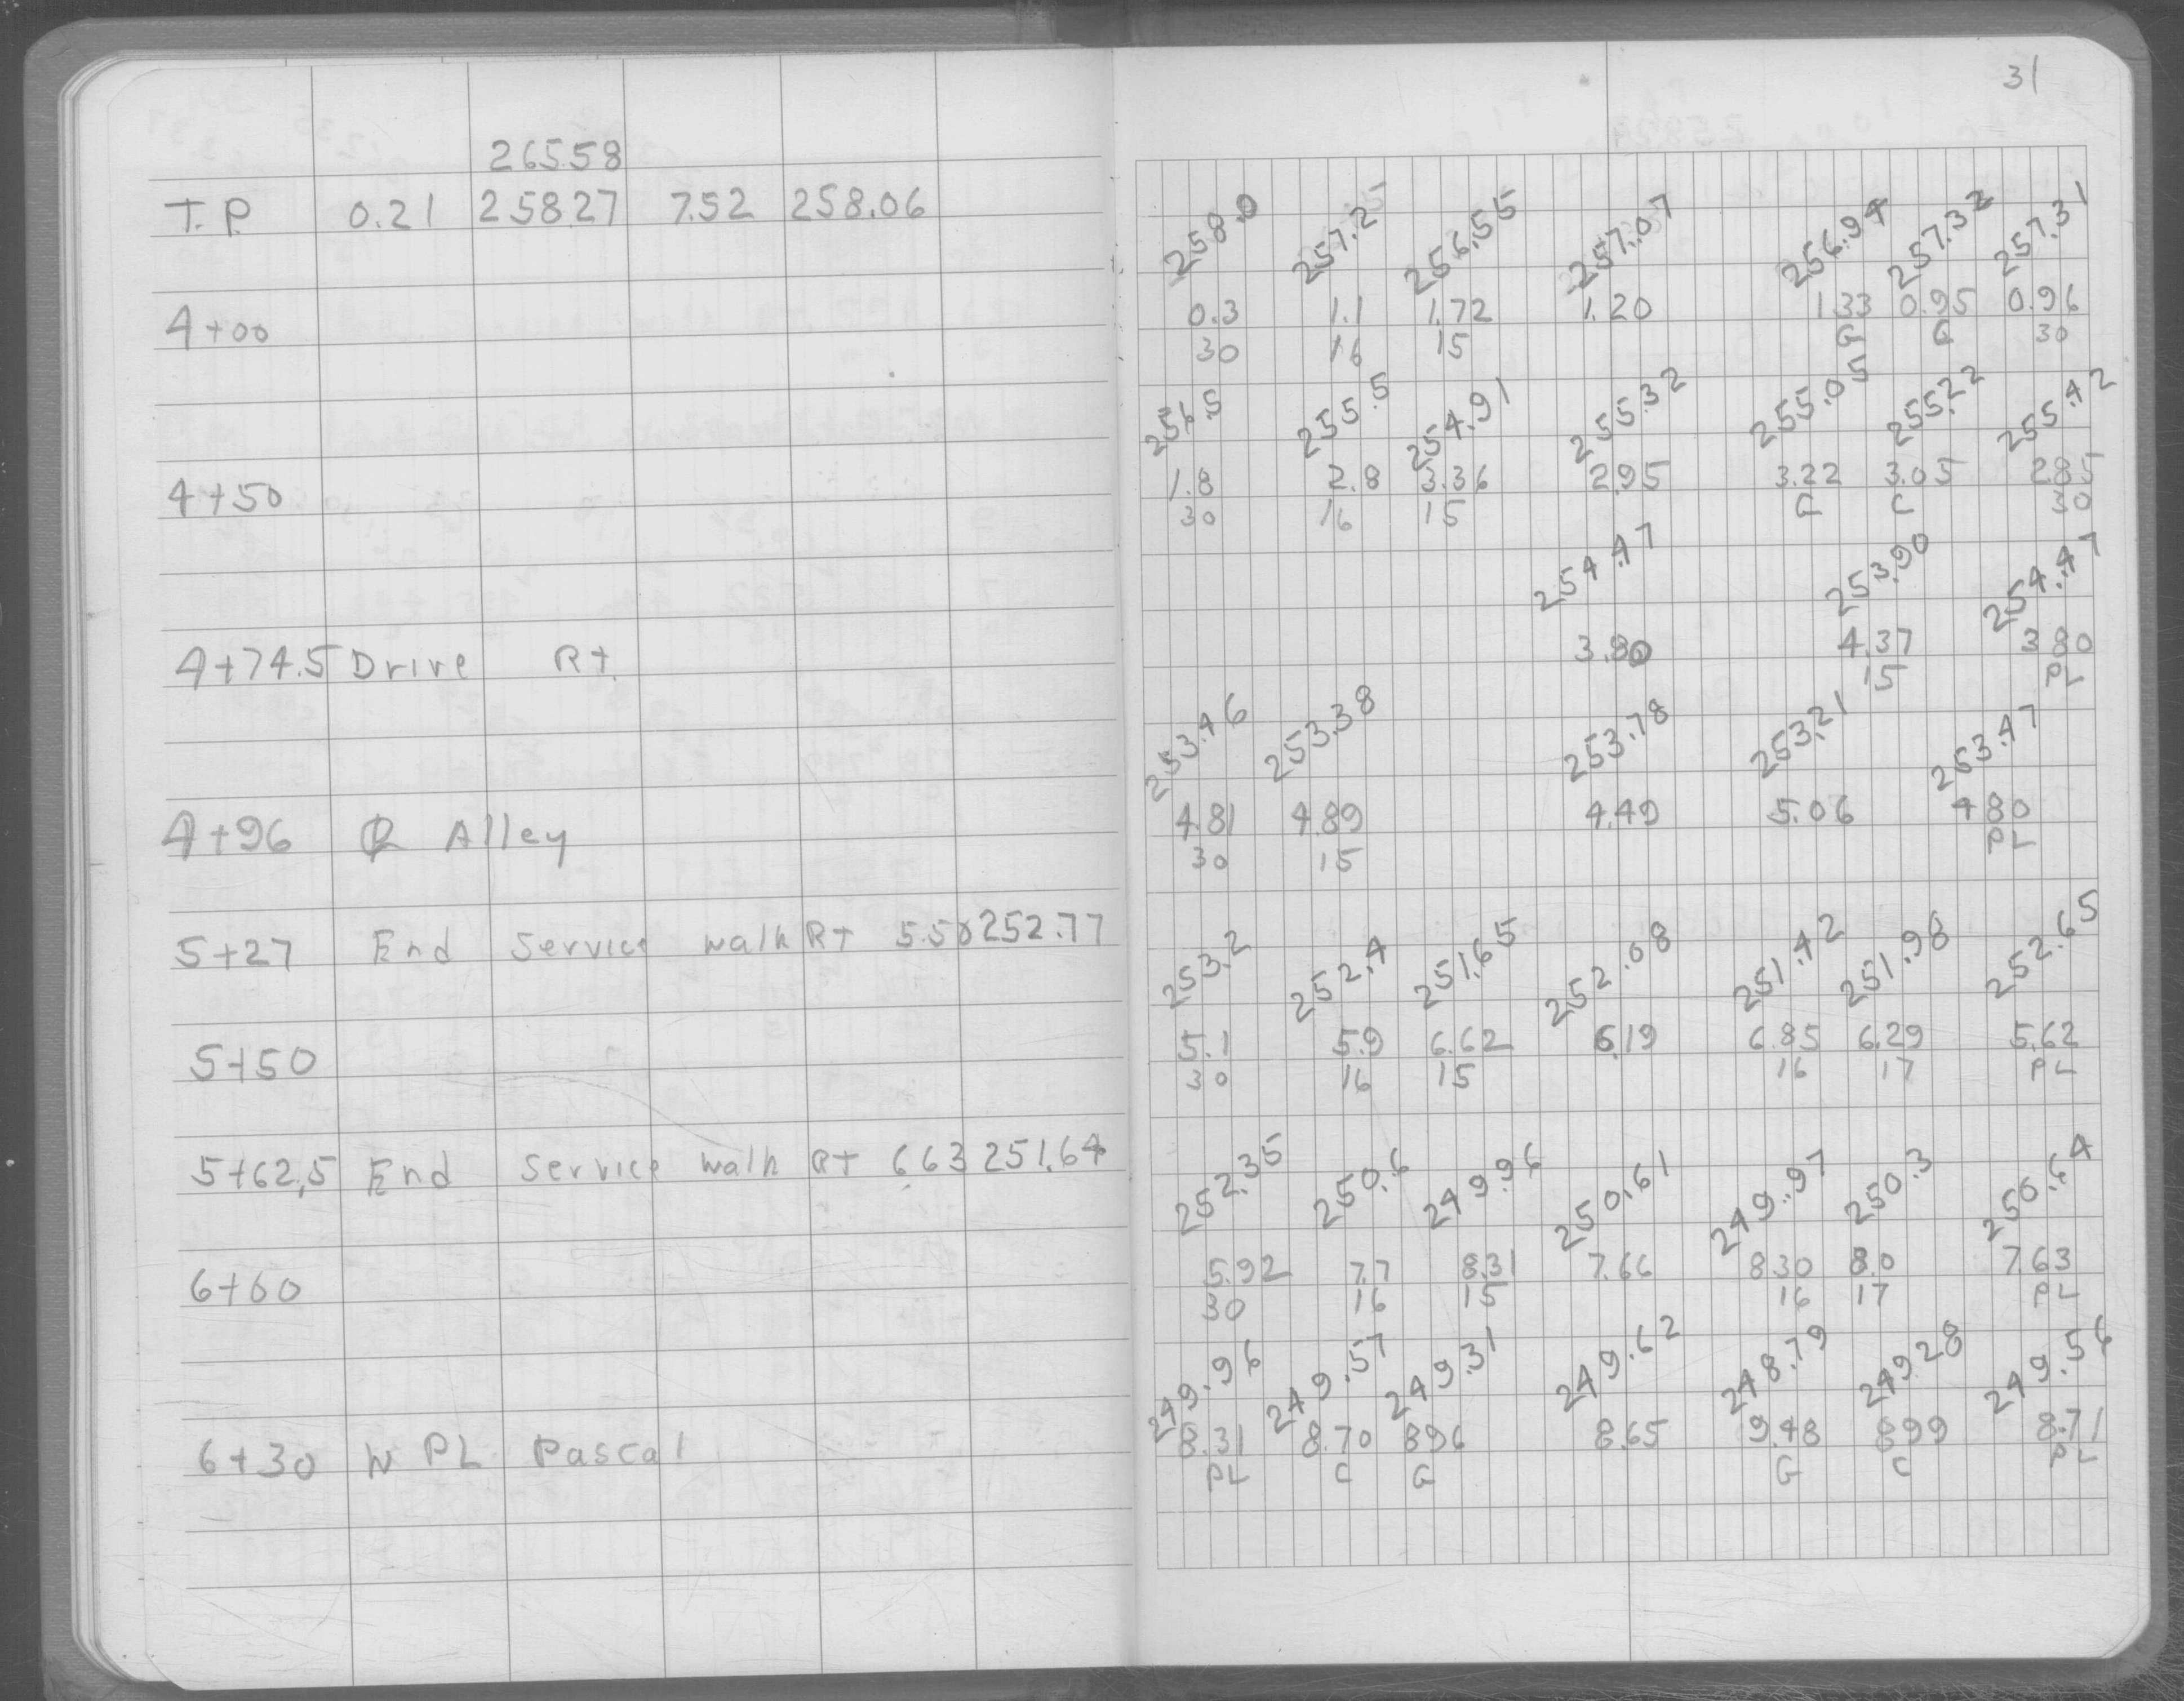 31
265.58
T.P. 0.21 258.27 7.52 258.06
258.0 257.2 256.55 257.07 256.94 257.32 257.31
4+00 0.3 1.1 1.72 1.20 1.33 0.95 0.96
30 16 15 G C 30
256.5 255.5 254.91 255.32 255.05 255.22 255.42
4+50 1.8 2.8 3.36 2.95 3.22 3.05 2.85
30 16 15 G C 30
254.47 253.90 254.47
4+74.5 Drive Rt. 3.80 4.37 3.80
15 PL
253.46 253.38 253.78 253.21 253.47
4+96 ℄ Alley 4.81 4.89 4.49 5.06 4.80
30 15 PL
5+27 End Service walk RT 5.50 252.77
253.2 252.4 251.65 252.08 251.42 251.98 252.65
5+50 5.1 5.9 6.62 6.19 6.85 6.29 5.62
30 16 15 16 17 PL
5+62,5 End Service walk RT 6.63 251.64
252.35 250.6 249.96 250.61 249.97 250.3 250.64
6+00 5.92 7.7 8.31 7.66 8.30 8.0 7.63
30 16 15 16 17 PL
249.96 249.57 249.31 249.62 248.79 249.28 249.56
6+30 W PL Pascal 8.31 8.70 8.96 8.65 9.48 8.99 8.71
PL C G G C PL